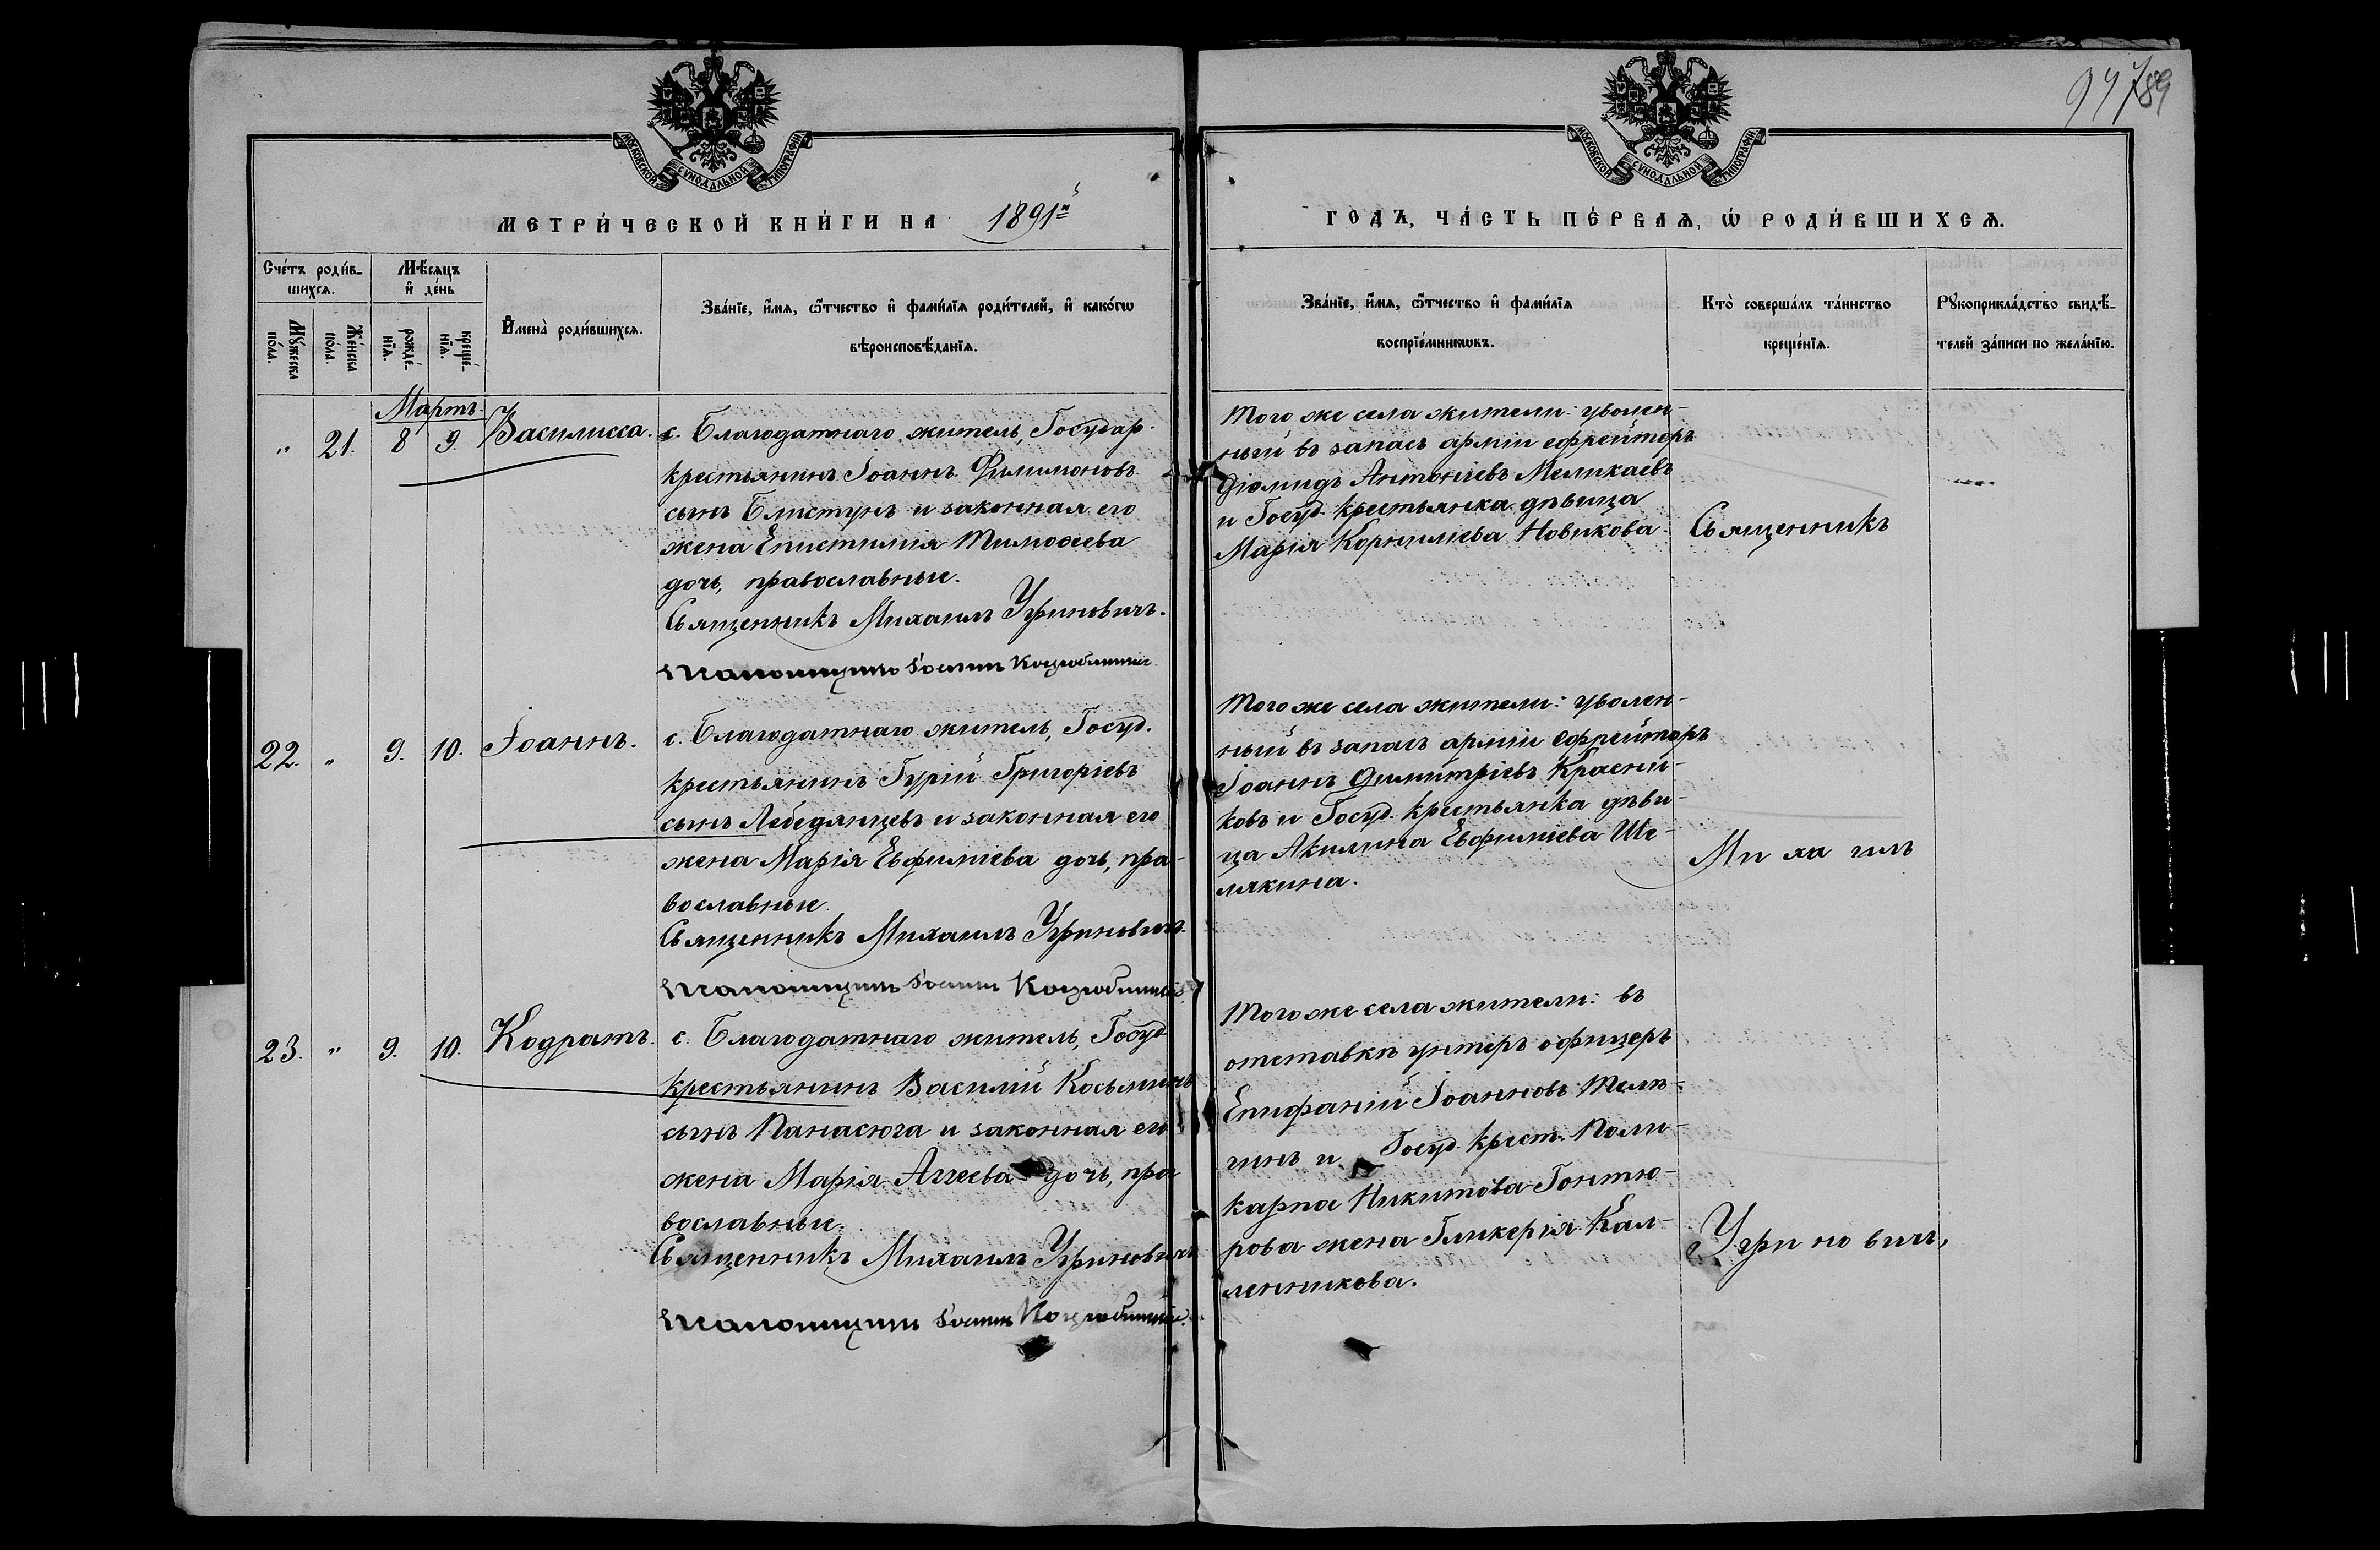 94789
МОСКОВСКОЙ СѴНОДАЛЬНОЙ ТИПОГРАФІИ
МОСКОВСКОЙ СѴНОДАЛЬНОЙ ТИПОГРАФІИ
МЕТРИ́ЧЕСКОЙ КНИ́ГИ НА 1891й
ГОДЪ, ЧА́СТЬ ПЕ́РВАѦ, Ѡ҆ РОДИ́ВШИХСѦ.
Сче́тъ роди́в-
шихсѧ.
Мꙋ́жеска
по́ла.
Же́нска
по́ла.
Мѣ́сѧцъ
и҆ де́нь
рожде́-
нїѧ.
креще́-
нїѧ.
И҆мена̀ роди́вшихсѧ.
Зва́нїе, и҆́мѧ, ѻ҆́тчество и҆ фами́лїѧ роди́телей, и҆ како́гѡ
вѣроисповѣ́данїѧ.
Зва́нїе, и҆́мѧ, ѻ҆́тчество и҆ фами́лїѧ
воспрїе́мникѡвъ.
Кто̀ соверша́лъ та́инство
креще́нїѧ.
Рꙋкоприкла́дство свидѣ́-
телей за́писи по жела́нїю.
Мартъ.
" 21. 8 9. Василисса.
с. Благодатнаго житель, Государ.
крестьянинъ Іоаннъ Филимоновъ
сынъ Блистунъ и законная его
жена Епистимія Тимоѳеева
дочь, православные.
Священникъ Михаилъ Угриновичъ.
Псаломщикъ Іоаннъ
Того же села жители: уволен-
ный въ запасъ арміи ефрейторъ
Діомидъ Антоніевъ Меликаевъ
и Госуд. крестьянка дѣвица
Марія Корниліева Новикова.
Священникъ
22. " 9. 10. Іоаннъ.
с. Благодатнаго житель, Госуд.
крестьянинъ Гурій Григоріевъ
сынъ Лебедянцевъ и законная его
жена Марія Евфиміева дочь, пра-
вославные.
Священникъ Михаилъ Угриновичъ.
Псаломщикъ Іоаннъ
Того же села жители: уволен-
ный въ запасъ арміи ефрейторъ
Іоаннъ Димитріевъ Красни-
ковъ и Госуд. крестьянка дѣви-
ца Акилина Евфиміева Ше-
лякина.
Ми ха илъ
23. " 9. 10. Кодратъ.
с. Благодатнаго житель, Госуд.
крестьянинъ Василій Косьминъ
сынъ Панасюга и законная его
жена Марія Аггеева дочь, пра
вославные.
Священникъ Михаилъ Угриновичъ
Псаломщикъ Іоаннъ
Того же села жители: въ
отставкѣ унтеръ офицеръ
Епифаній Іоанновъ Теля-
гинъ и Госуд. крест. Поли-
карпа Никитова Гонтю-
рова жена Гликерія Кал-
ленникова.
Угри но вичъ,